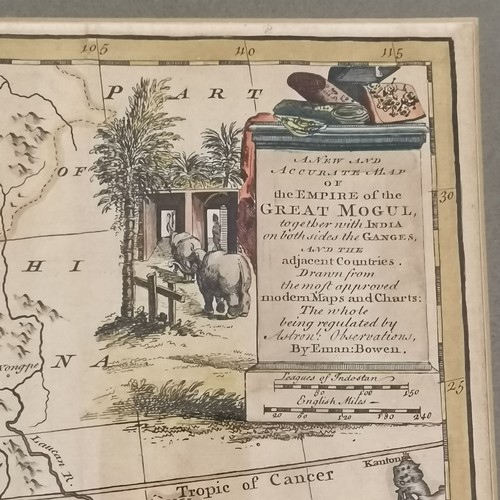 105 110 115
PART
OF
CHINA
A NEW AND
ACCURATE MAP
OF
the EMPIRE of the
GREAT MOGUL,
together with INDIA
on both sides the GANGES,
AND THE
adjacent Countries.
Drawn from
the most approved
modern Maps and Charts:
The whole
being regulated by
Astronl: Observations,
By Eman: Bowen.
30
Leagues of Indostan
50 100 150
English Miles
20 60 120 180 240
25
Laucan R.
Kanton
Tropic of Cancer